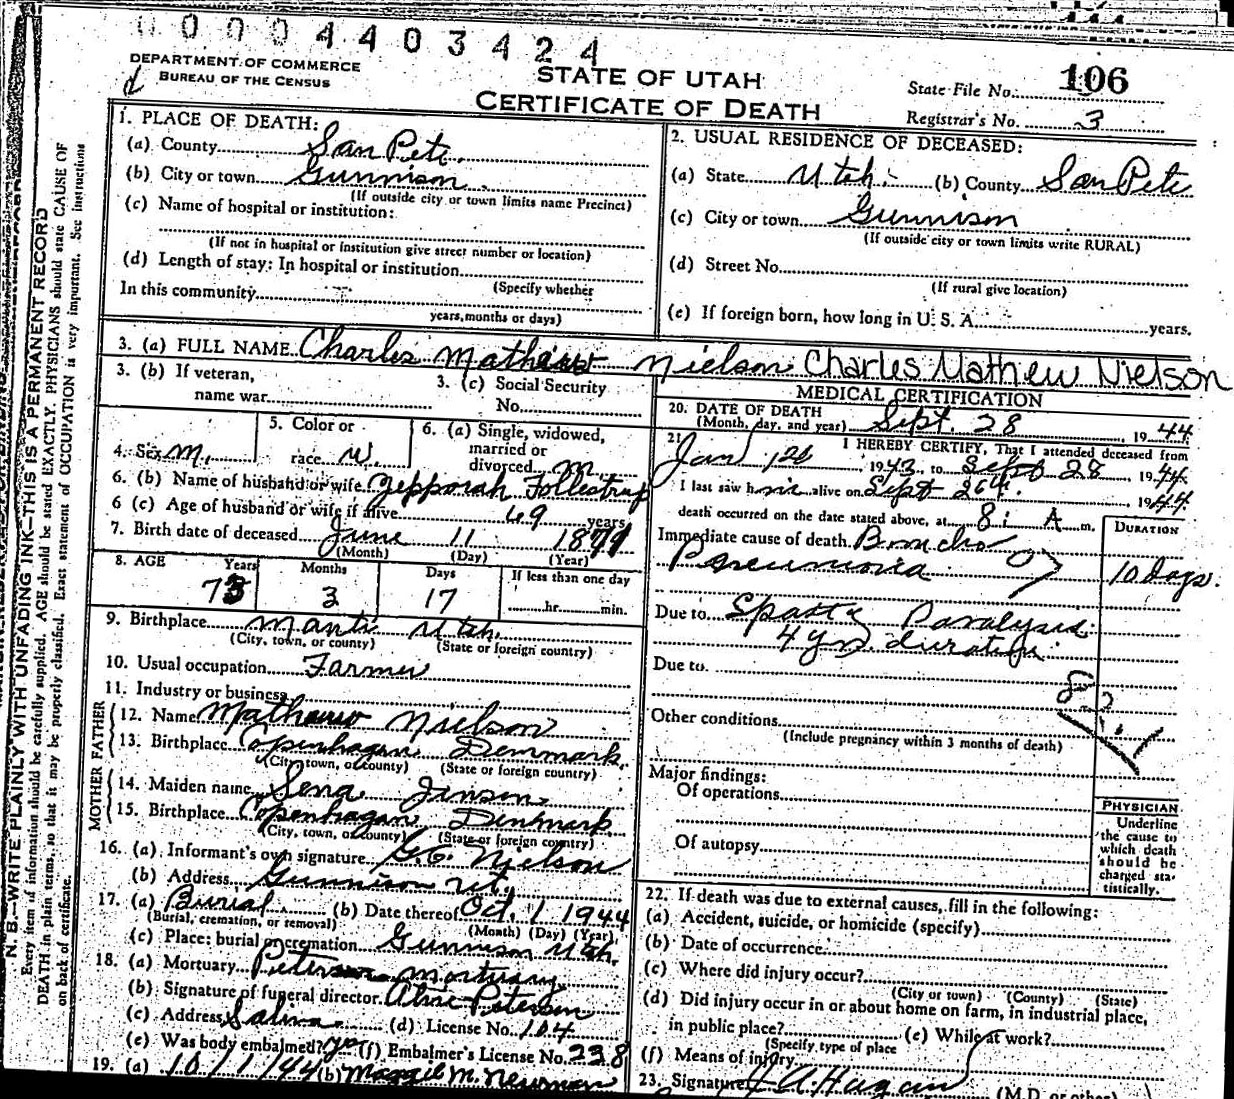 00004403424
DEPARTMENT OF COMMERCE
BUREAU OF THE CENSUS
STATE OF UTAH
CERTIFICATE OF DEATH
State File No. 106
Registrar's No. 3
1. PLACE OF DEATH:
(a) County San Pete
(b) City or town Gunnison
(If outside city or town limits name Precinct)
(c) Name of hospital or institution:
(If not in hospital or institution give street number or location)
(d) Length of stay: In hospital or institution
(Specify whether
In this community
years, months or days)
2. USUAL RESIDENCE OF DECEASED:
(a) State Utah (b) County San Pete
(c) City or town Gunnison
(If outside city or town limits write RURAL)
(d) Street No.
(If rural give location)
(e) If foreign born, how long in U. S. A. years.
3. (a) FULL NAME Charles Mathew Nielson Charles Mathew Nielson
3. (b) If veteran,
name war
3. (c) Social Security
No.
4. Sex m.
5. Color or
race w.
6. (a) Single, widowed,
married or
divorced m
6. (b) Name of husband or wife Zepporah Follestrup
6 (c) Age of husband or wife if alive 69 years
7. Birth date of deceased June 11 1871
(Month) (Day) (Year)
8. AGE Years Months Days If less than one day
73 3 17 hr. min.
9. Birthplace Manti Utah
(City, town, or county) (State or foreign country)
10. Usual occupation Farmer
11. Industry or business
FATHER
12. Name Mathew Nielson
13. Birthplace Copenhagen Denmark
(City, town, or county) (State or foreign country)
MOTHER
14. Maiden name Sena Jensen
15. Birthplace Copenhagen Denmark
(City, town, or county) (State or foreign country)
16. (a) Informant's own signature G.C. Nielson
(b) Address Gunnison Ut.
17. (a) Burial (b) Date thereof Oct. 1 1944
(Burial, cremation, or removal) (Month) (Day) (Year)
(c) Place: burial or cremation Gunnison Utah.
18. (a) Mortuary Peterson Mortuary
(b) Signature of funeral director Peterson
(c) Address Salina (d) License No. 104
(e) Was body embalmed? yes (f) Embalmer's License No. 238
19. (a) 10/1/44 (b) Maggie M. Newman
MEDICAL CERTIFICATION
20. DATE OF DEATH
(Month, day, and year) Sept. 28, 1944
21. I HEREBY CERTIFY, That I attended deceased from
Jan 1943, to Sept 28 1944
I last saw him alive on Sept 26th 1944
death occurred on the date stated above, at 8: A m.
DURATION
Immediate cause of death Broncho
Pneumonia 10 days.
Due to Spastic Paralysis
4 yrs. duration
Due to
Other conditions
(Include pregnancy within 3 months of death)
Major findings:
Of operations
Of autopsy
PHYSICIAN
Underline
the cause to
which death
should be
charged sta-
tistically.
22. If death was due to external causes, fill in the following:
(a) Accident, suicide, or homicide (specify)
(b) Date of occurrence
(c) Where did injury occur?
(City or town) (County) (State)
(d) Did injury occur in or about home on farm, in industrial place,
in public place? (e) While at work?
(Specify type of place
(f) Means of injury
23. Signature Hagan (M.D. or other)
N. B.—WRITE PLAINLY WITH UNFADING INK—THIS IS A PERMANENT RECORD
Every item of information should be carefully supplied. AGE should be stated EXACTLY. PHYSICIANS should state CAUSE OF
DEATH in plain terms, so that it may be properly classified. Exact statement of OCCUPATION is very important. See instructions
on back of certificate.